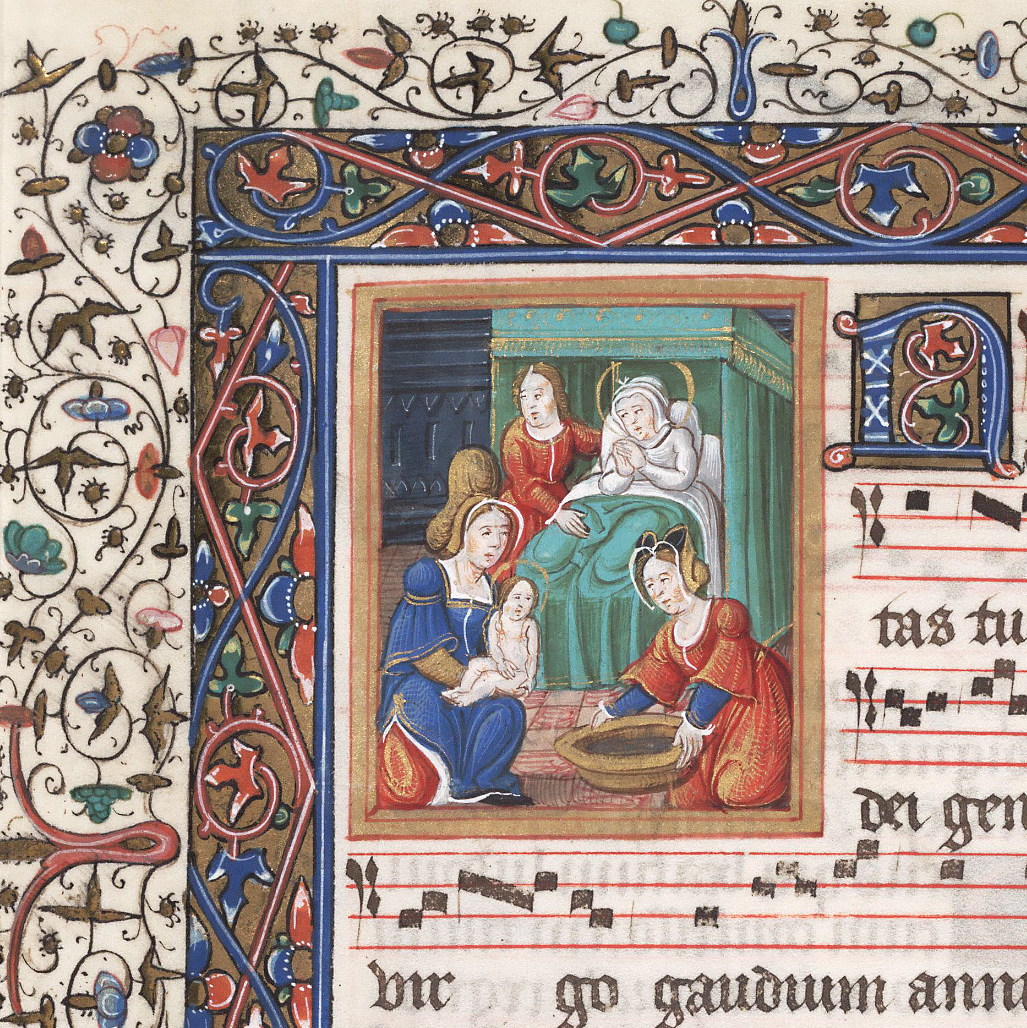 N
tas tu
dei gen
vir go gaudium ann